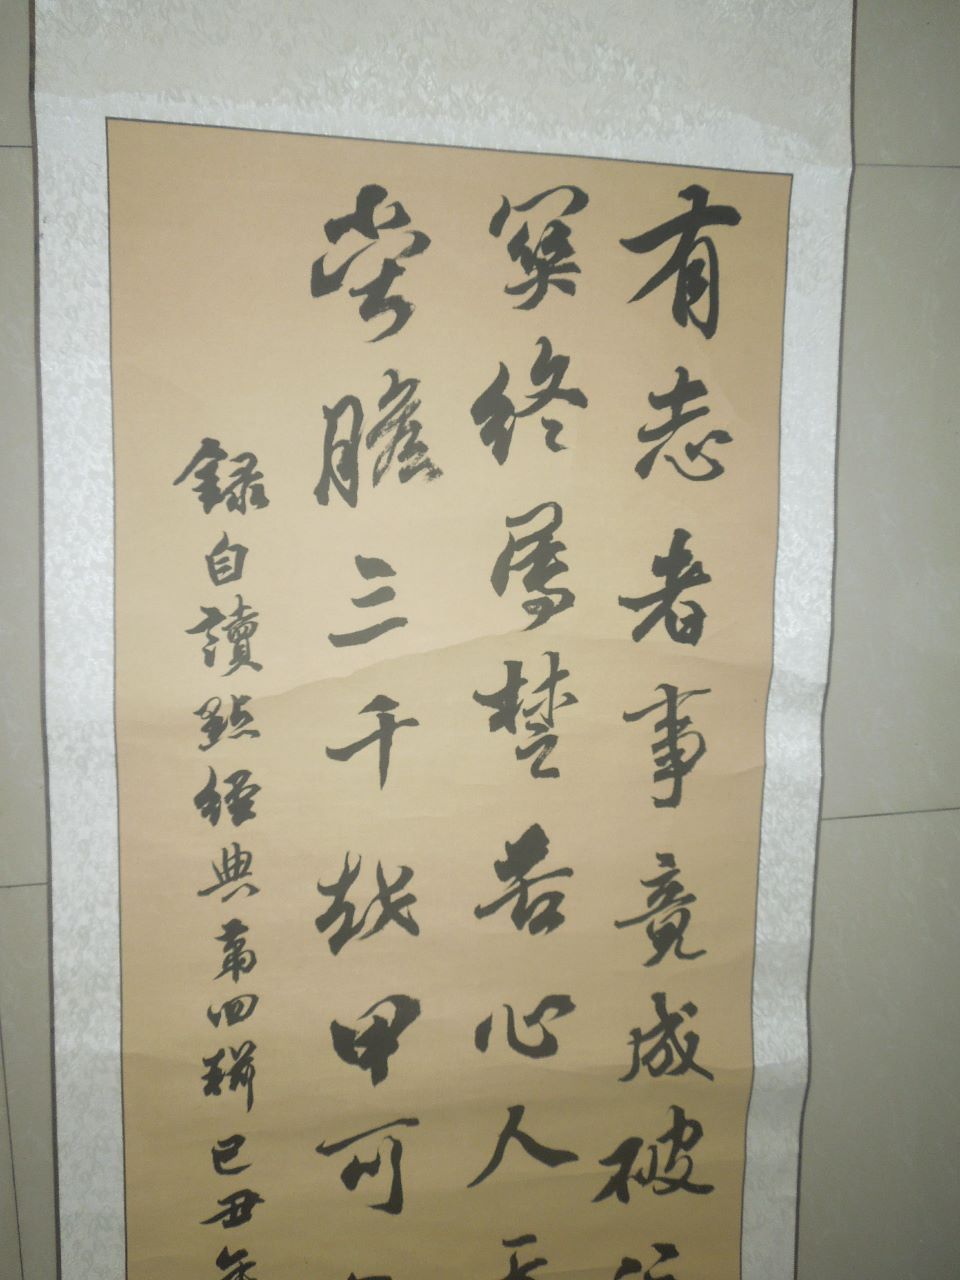 有志者事竟成破
关终属楚苦心人天
尝胆三千越甲可
録自讀點經典第四輯己丑年